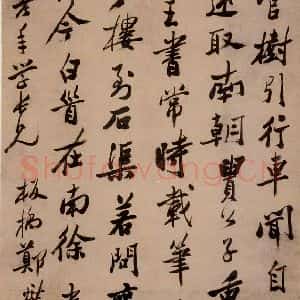 官樹引行車聞自
取南朝費公子重
王書常時載筆
樓到石渠若問
今白首在南徐
年學老兄 板橋鄭燮
Shufawang.cn